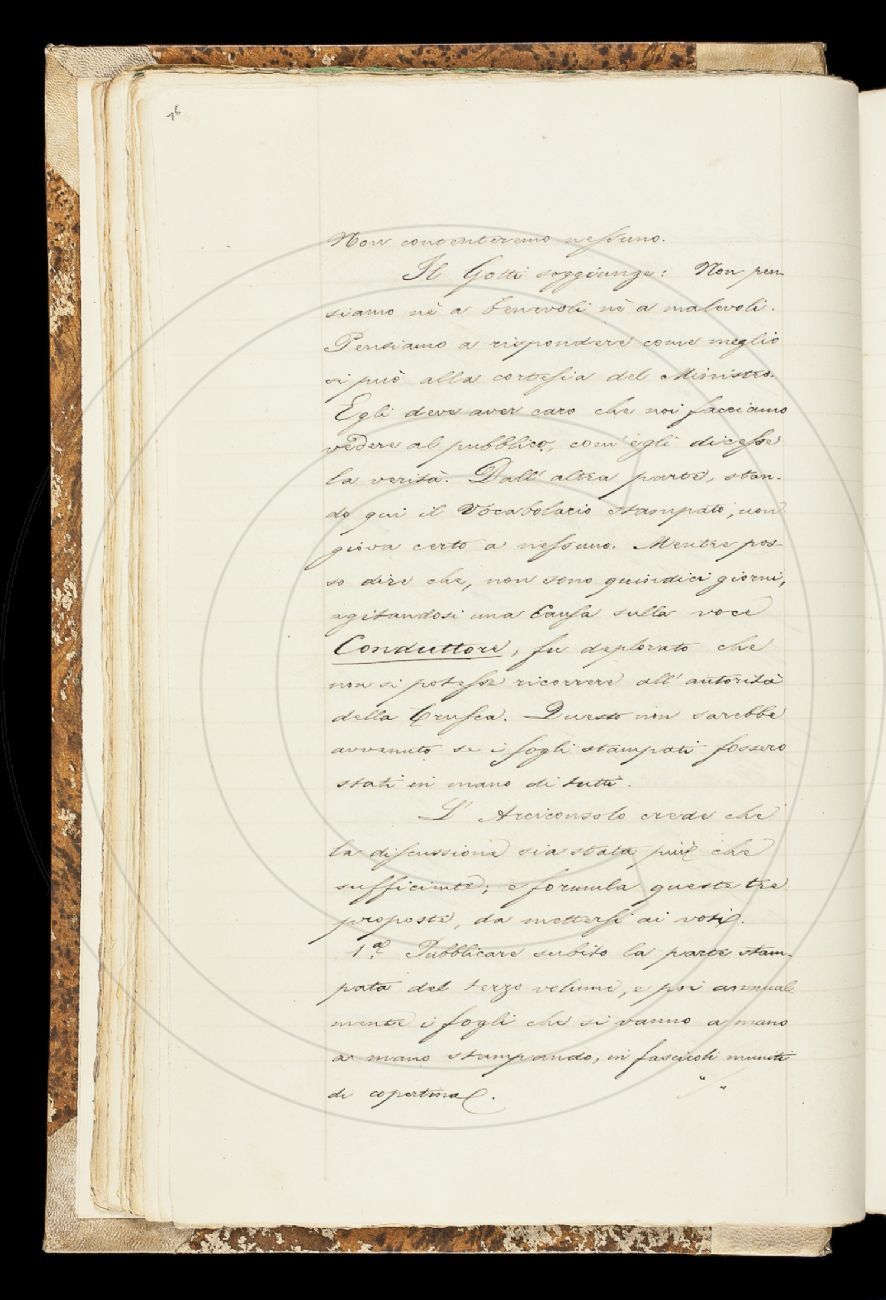 76
Non contenteremo nessuno.
Il Gotti soggiunge: Non pen-
siamo nè a benevoli nè a malevoli.
Pensiamo a rispondere come meglio
si può alla cortesia del Ministro.
Egli deve aver caro che noi facciamo
vedere al pubblico, com'egli dicesse
la verità. Dall'altra parte, stan-
do qui il Vocabolario stampato, non
giova certo a nessuno. Mentre pos-
so dire che, non sono quindici giorni,
agitandosi una Causa sulla voce
Conduttore, fu deplorato che
non si potesse ricorrere all'autorità
della Crusca. Questo non sarebbe
avvenuto se i fogli stampati fossero
stati in mano di tutti.
L'Arciconsolo crede che
la discussione sia stata più che
sufficiente; e formula queste tre
proposte, da mettersi ai voti.
1.a Pubblicare subito la parte stam-
pata del terzo volume, e poi annual
mente i fogli che si vanno a mano
a mano stampando, in fascicoli muniti
di copertina.